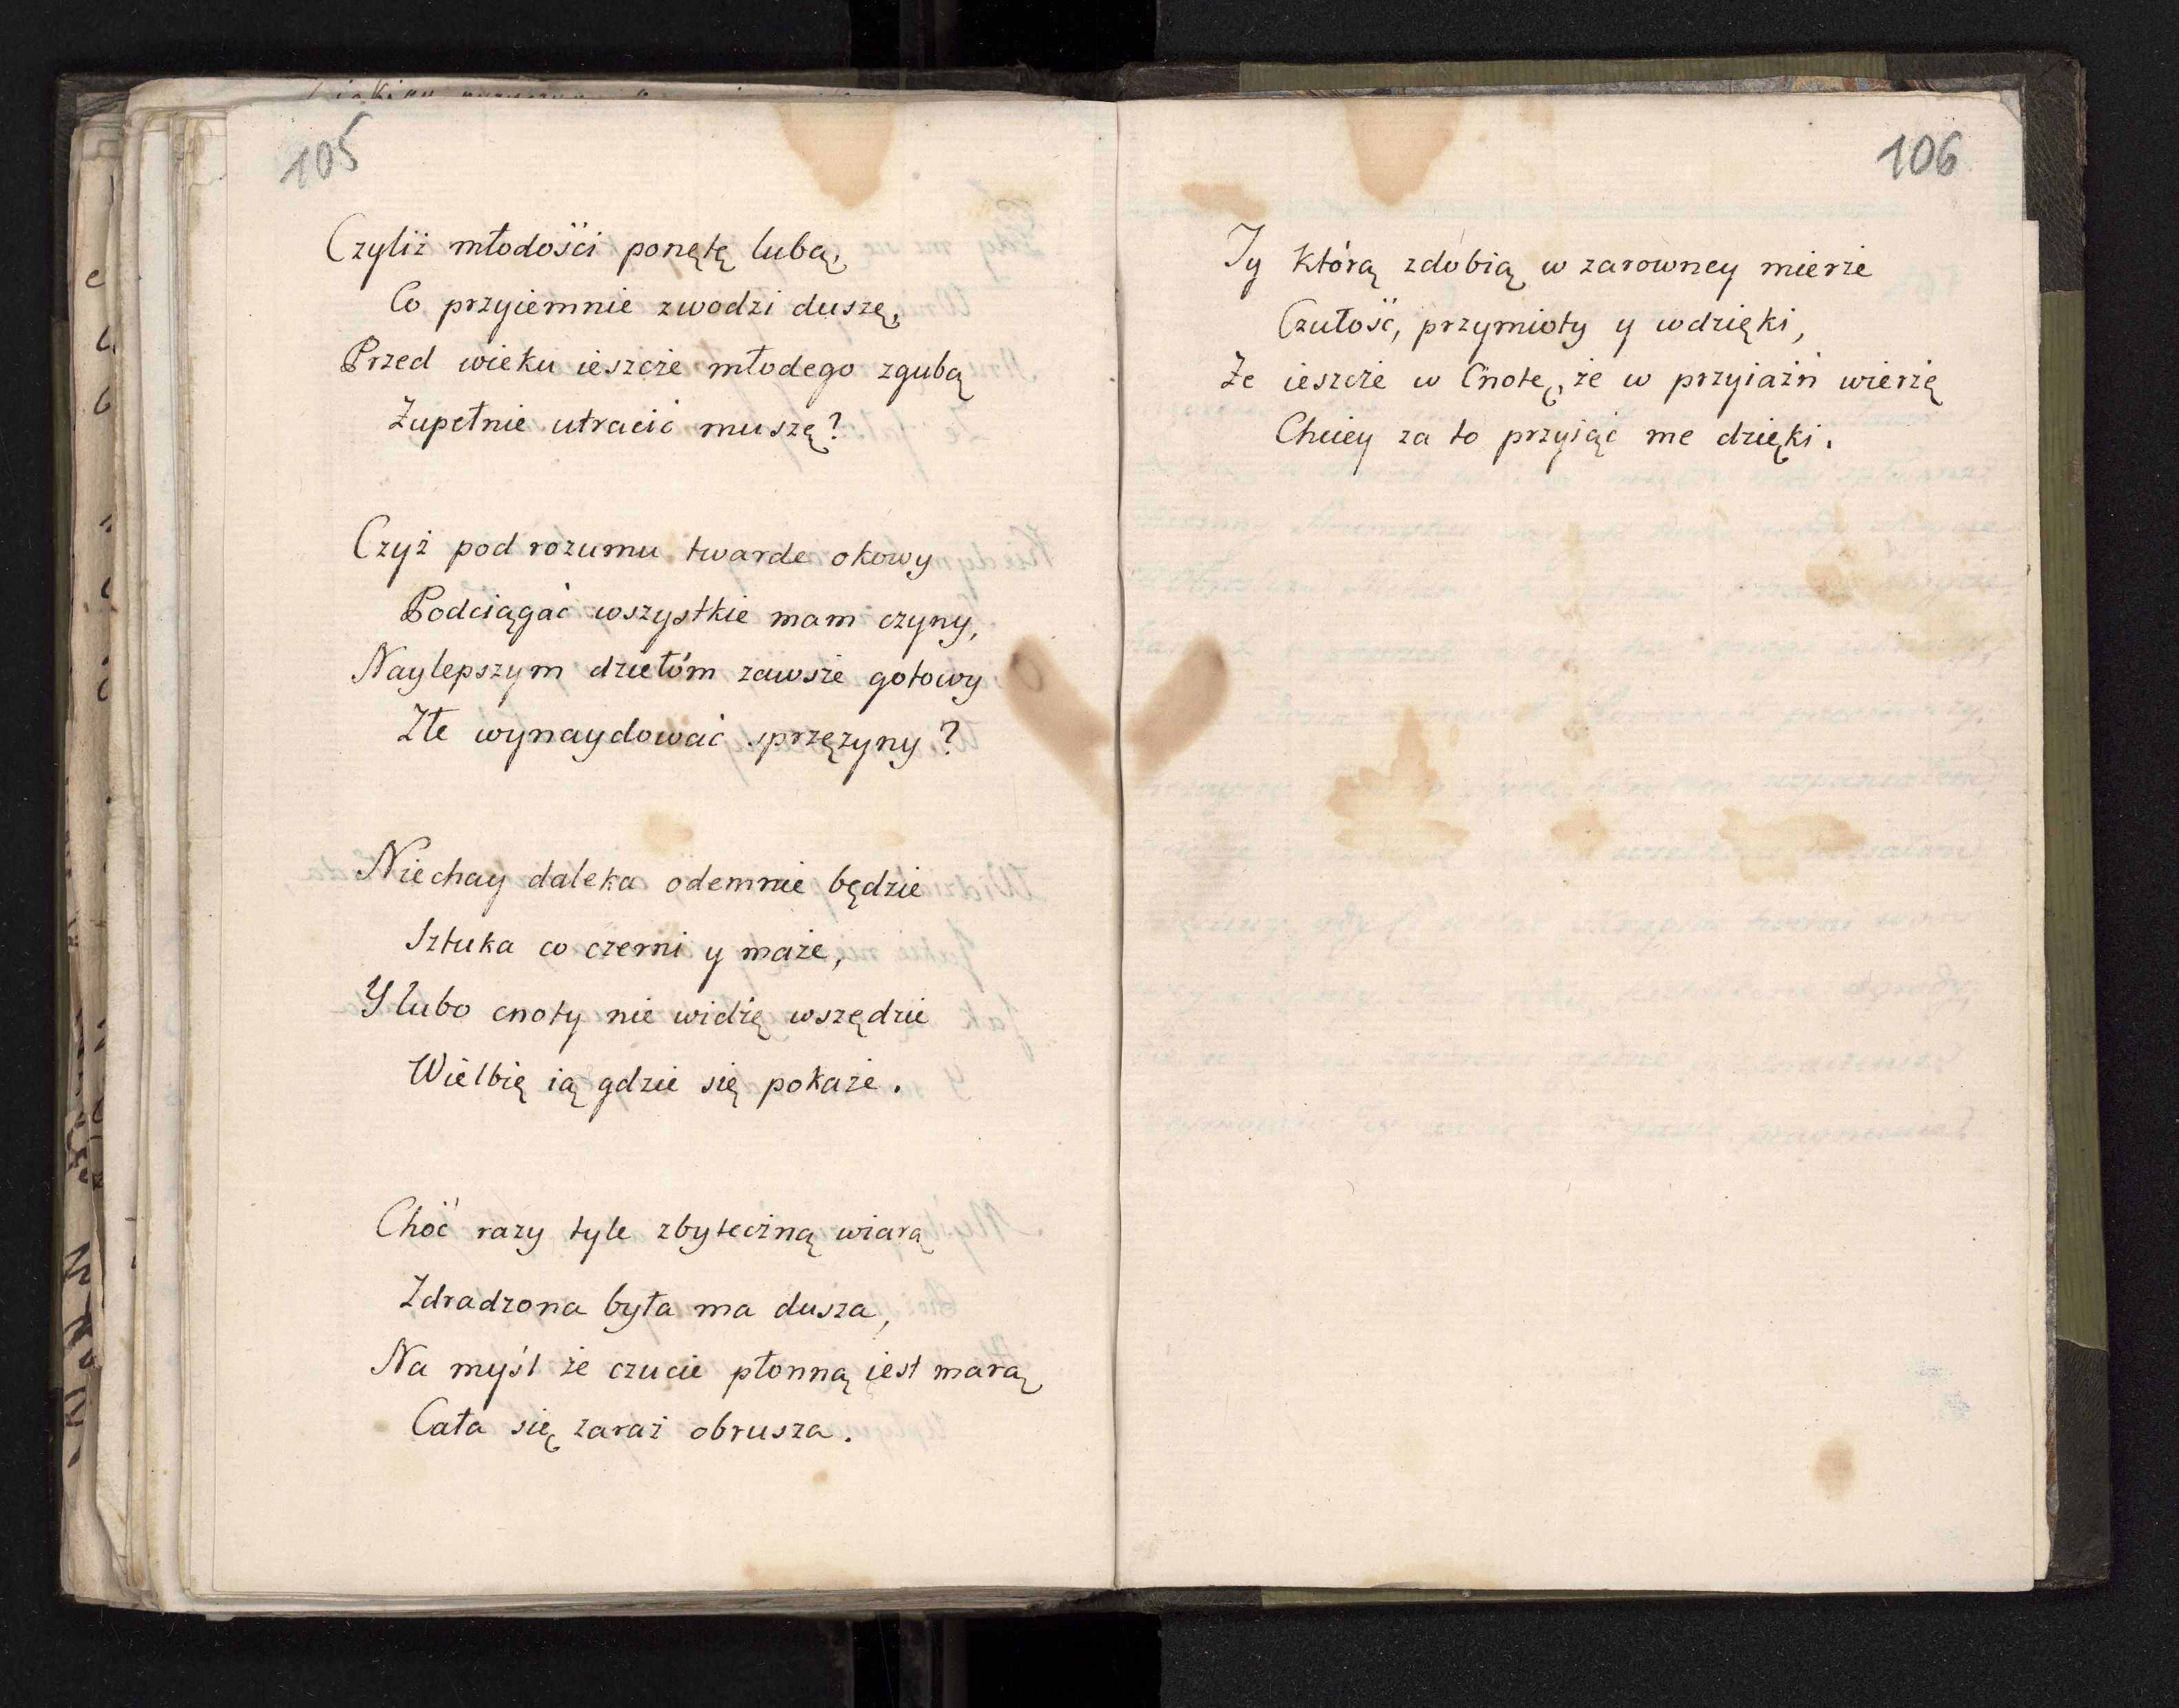 105
Czyliż młodości ponętę lubą,
Co przyiemnie zwodzi duszę,
Przed wieku ieszcże młodego zgubą
Zupełnie utracić muszę?
Czyż pod rozumu twarde okowy
Podciągać wszystkie mam czyny,
Naylepszym dziełóm zawsże gotowy
Złe wynaydować sprzężyny?
Niechay daleka odemnie będzie
Sztuka co czerni y maże,
Y lubo cnoty nie widżę wszędzie
Wielbię ią gdzie się pokaże.
Choć razy tyle zbytecżną wiarą
Zdradzona była ma dusza,
Na myśl że czucie płonną iest marą
Cała się zaraż obrusza.
106
Ty którą zdobią w zarowney mierże
Czułość, przymioty y wdzięki,
Że ieszcże w Cnotę, że w przyiaźń wierżę
Chciey za to przyiąć me dzięki.